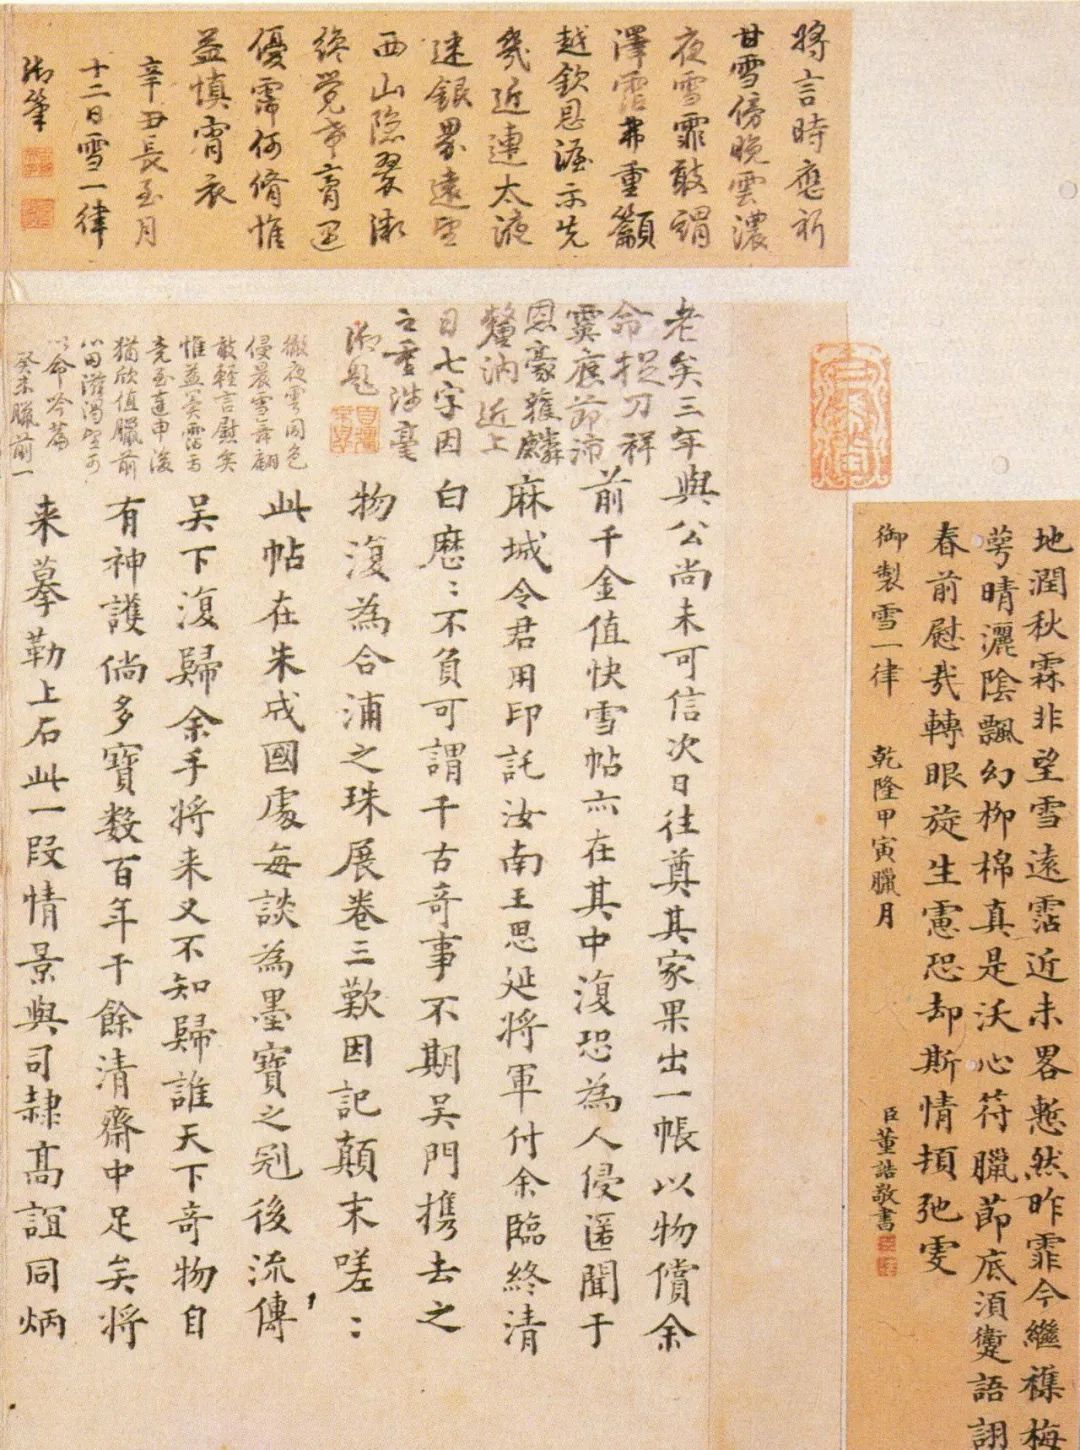 地潤秋霖非望雪遠霑近未畧慙然昨霏今繼襍梅
蕚晴灑陰飄幻柳棉真是沃心符臘節底須躗語詡
春前慰哉轉眼旋生慮恐却斯情損弛雯
御製雪一律 乾隆甲寅臘月
臣董誥敬書
將言時應祈
甘雪傍晚雲濃
夜雪霏敢謂
澤霑兼重籲
越欽恩渥示先
幾近連太液
迷銀界遠望
西山隱翠微
終覺幸膏過
優霈何脩惟
益慎宵衣
辛丑長至月
十二日雪一律
御筆
老矣三年
命捉刀祥
霙應節沛
恩豪獲麟
近上
日七字因
之重涉毫
御題
徹夜雲同色
侵晨雪舞翩
敢輕言慰矣
惟益冀霑
竟至連申後
猶欣值臘前
心田滋渴望可
以命吟篇
癸未臘前一
與公尚未可信次日往奠其家果出一帳以物償余
前千金值快雪帖亦在其中復恐為人侵匿聞于
麻城令君用印託汝南王思延將軍付余臨終清
白歷歷不負可謂千古奇事不期吴門携去之
物復為合浦之珠展卷三歎因記顛末嗟嗟
此帖在朱成國處每談為墨寶之冠後流傳
吴下復歸余手將来又不知歸誰天下奇物自
有神護倘多寶数百年于餘清齋中足矣將
来摹勒上石此一段情景與司隷高誼同炳